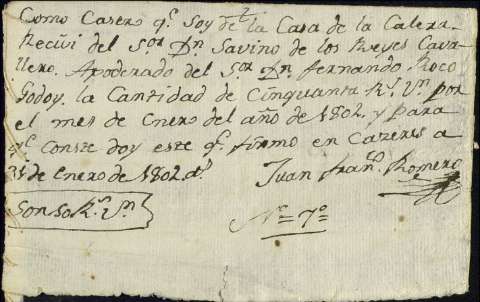 Como Casero q.e soy de la Casa de la Calera.
Recivi del S.or Dn Savino de los Reyes Cava-
llero. Apoderado del S.or Dn. fernando Roco
Godoy. la Cantidad de Cinquanta R.s Vn por
el mes de Enero del año de 1802. y para
q.e Conste doy este q.e firmo en Cazeres a
31 de Enero de 1802 a.s
Juan fran.co Romero
Son 50 R.s Vn
N.o 7o